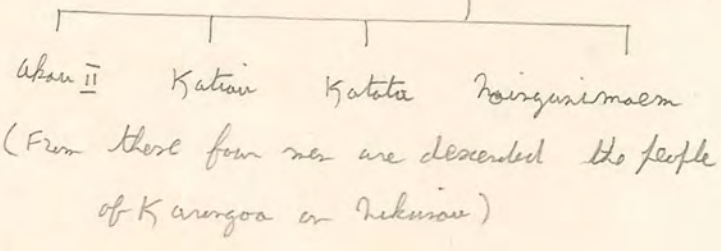 Akau II Katiau Katata Noinganimaem
(From these four men are descended the people
of Karongoa on Nikunau)